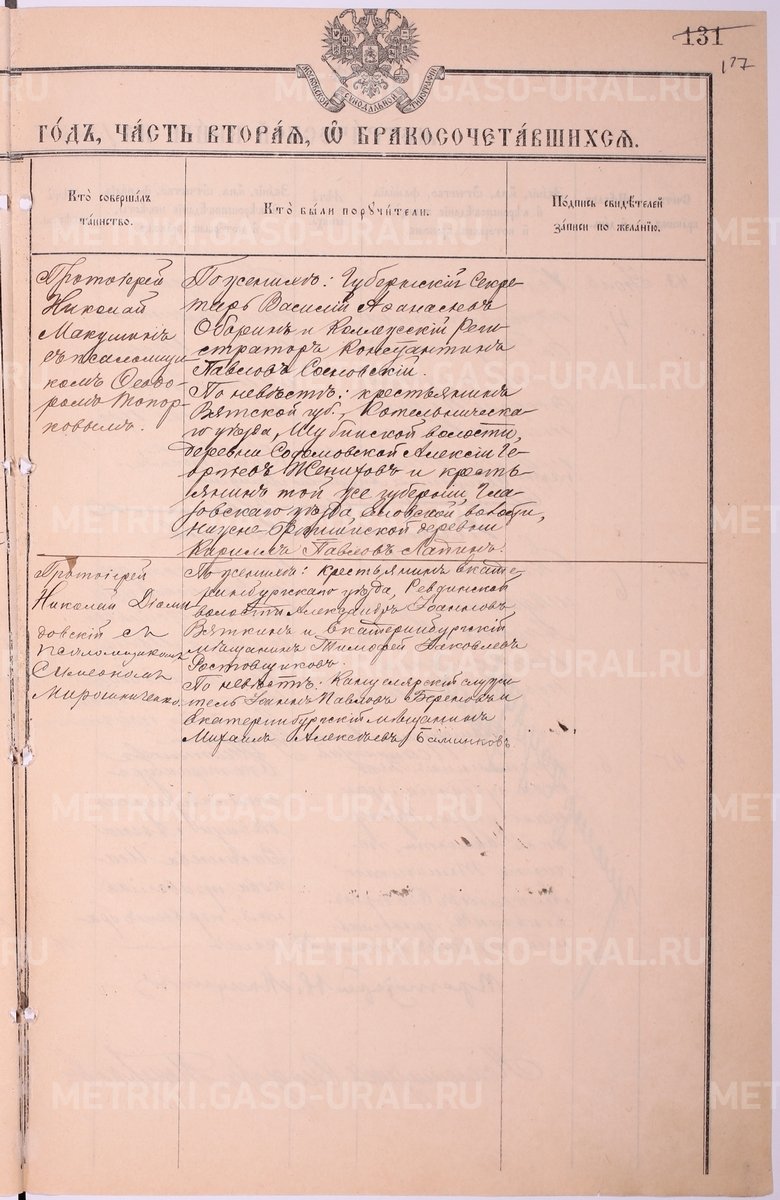 131
127
МОСКОВСКОЙ СѴНОДАЛЬНОЙ ТИПОГРАФІИ
ГО́ДЪ, ЧА́СТЬ ВТОРА́Я, Ѿ БРАКОСОЧЕТА́ВШИХСЯ.
Кто̀ соверша́лъ
та́инство.
Кто̀ бы́ли поручи́тели.
По́дпись свидѣ́телей
за́писи по жела́нїю.
Протоіерей
Николай
Макушинъ
съ псаломщи
комъ Ѳеодо-
ромъ Топор-
ковымъ.
По женихѣ: Губернскій Секре-
тарь Василій Аѳанасіевъ
Оборинъ и Коллежскій Реги-
страторъ Константинъ
Павловъ Сосновскій.
По невѣстѣ: крестьянинъ
Вятской губ., Котельническа-
го уѣзда, волости,
деревни Алексій Ге-
оргіевъ Жениховъ и кресть-
янинъ той же губерніи, Гла-
зовскаго уѣзда, Еловской волости,
деревни
Кириллъ Павловъ
Протоіерей
Николай Діоми
довскій съ
псаломщикомъ
Симеономъ
Мирошниченко.
По женихѣ: крестьянинъ Екате-
ринбургскаго уѣзда, Ревдинской
волости Александръ Іоанновъ
Вяткинъ и Екатеринбургскій
мѣщанинъ Тимоѳей Іаковлевъ
Ростовщиковъ.
По невѣстѣ: Канцелярскій служи
тель Іоаннъ Павловъ и
Екатеринбургскій мѣщанинъ
Михаилъ Алексѣевъ
METRIKI.GASO-URAL.RU